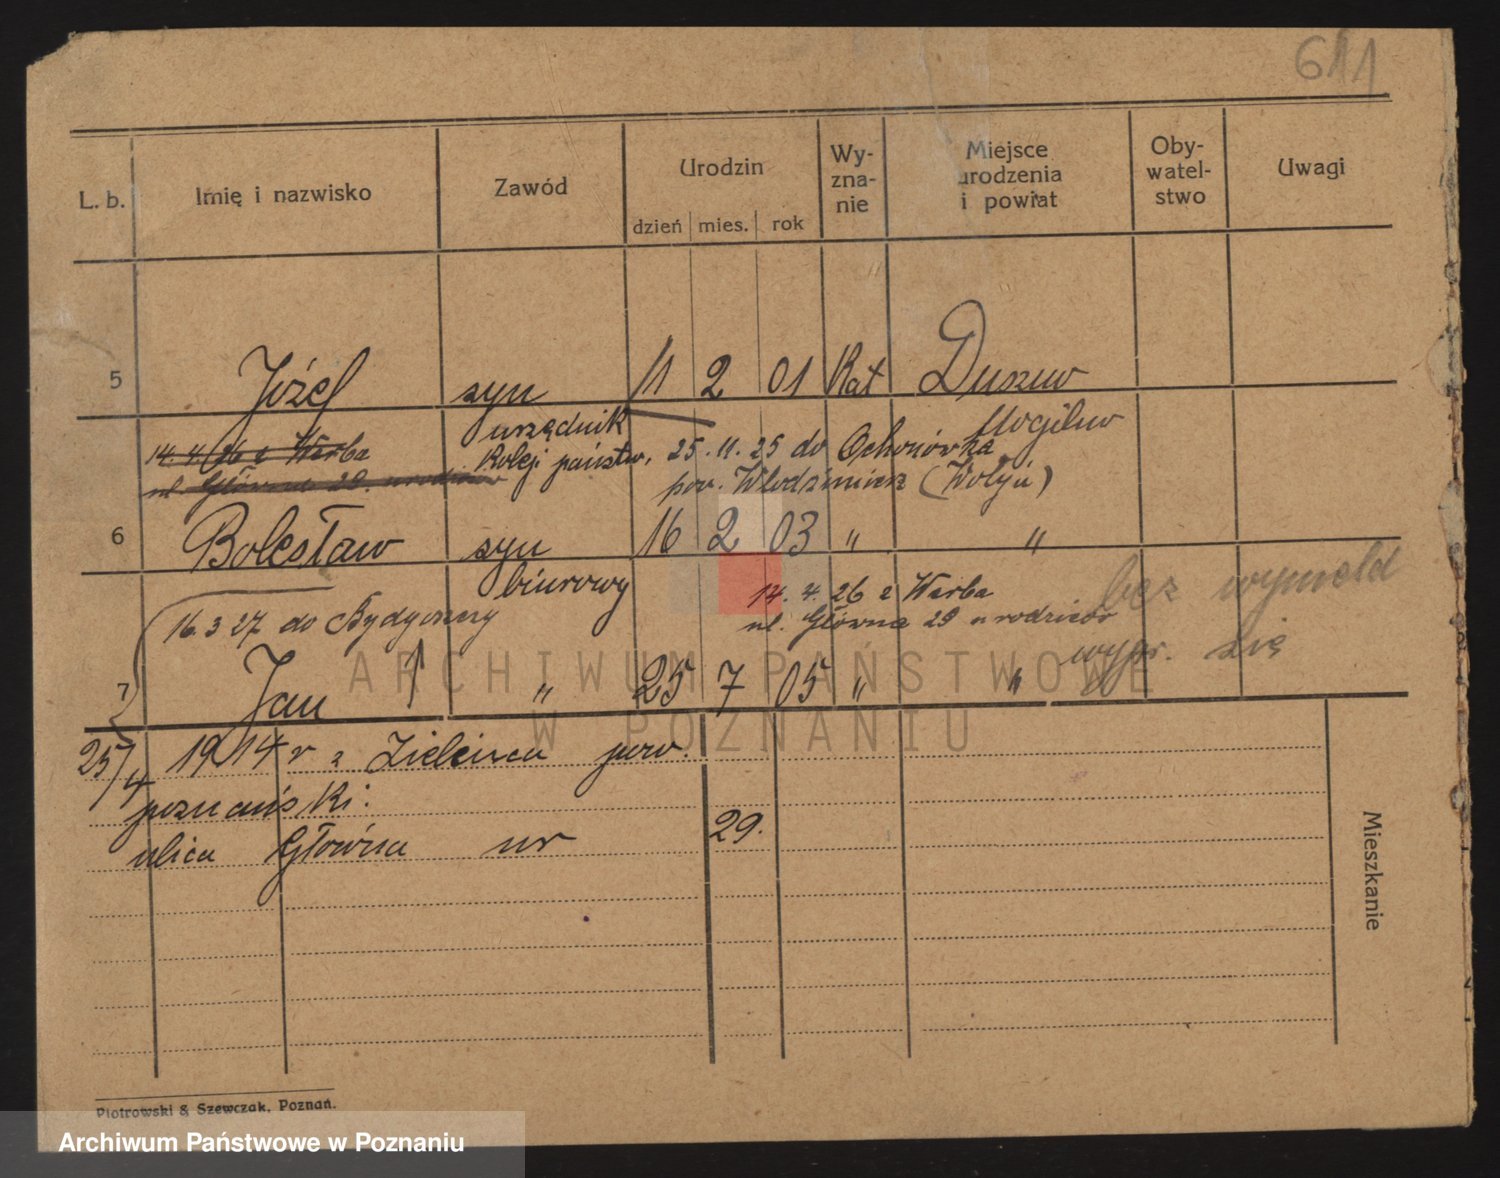 611
L. b. Imię i nazwisko Zawód Urodzin dzień mies. rok Wy-zna-nie Miejsce urodzenia i powiat Oby-watel-stwo Uwagi
5 Józef syn 11 2 01 Kat Duszno
urzędnik Mogilno
14. 4. 26 z Warba Kolej. państw, 25. 11. 25 do Ochnówka
ul. Główna 29. u rodziców pow. Włodzimierz (Wołyń)
6 Bolesław syn 16 2 03 " "
biurowy 14. 4. 26 z Warba bez wymeld
16. 3 27 do Bydgoszczy ul. Główna 29 u rodziców
wypr. się
7 Jan " 25 7 05 " "
25/4 1914 r z Zieleńca pow.
poznański.
ulica Główna nr 29.
Mieszkanie
Piotrowski & Szewczak, Poznań.
ARCHIWUM PAŃSTWOWE
W POZNANIU
Archiwum Państwowe w Poznaniu